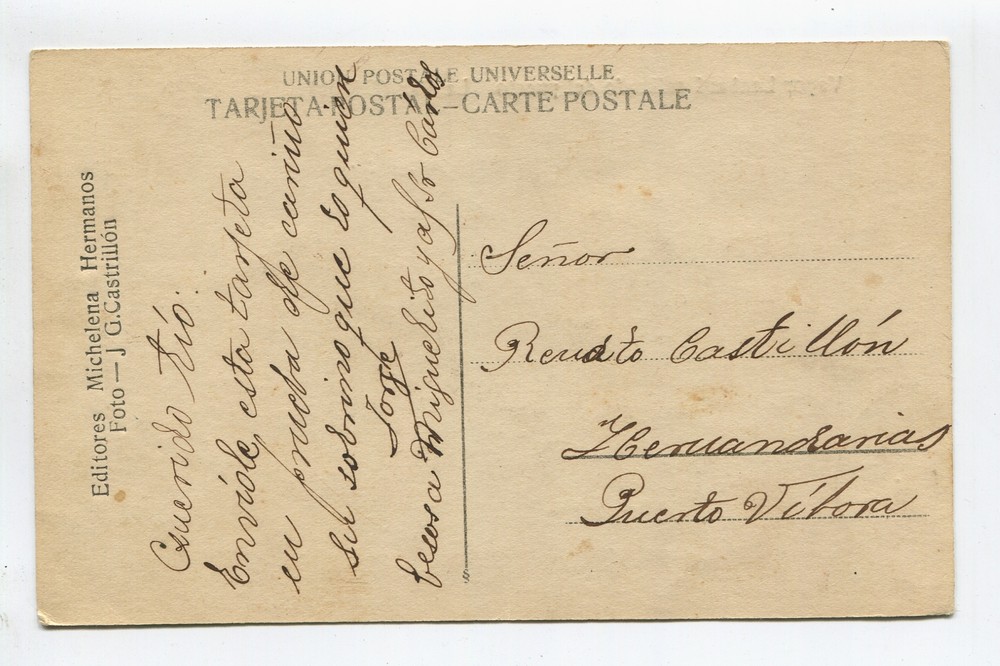 UNION POSTALE UNIVERSELLE
TARJETA POSTAL–CARTE POSTALE
Editores Michelena Hermanos
Foto — J G. Castrillón
Querido tío:
Envíole esta tarjeta
en prueba de cariño
su sobrino que lo quiere
Jorge
besos a Miguelito y a Carlos
Señor
Renato Castillón
Hernandarias
Puerto Víbora